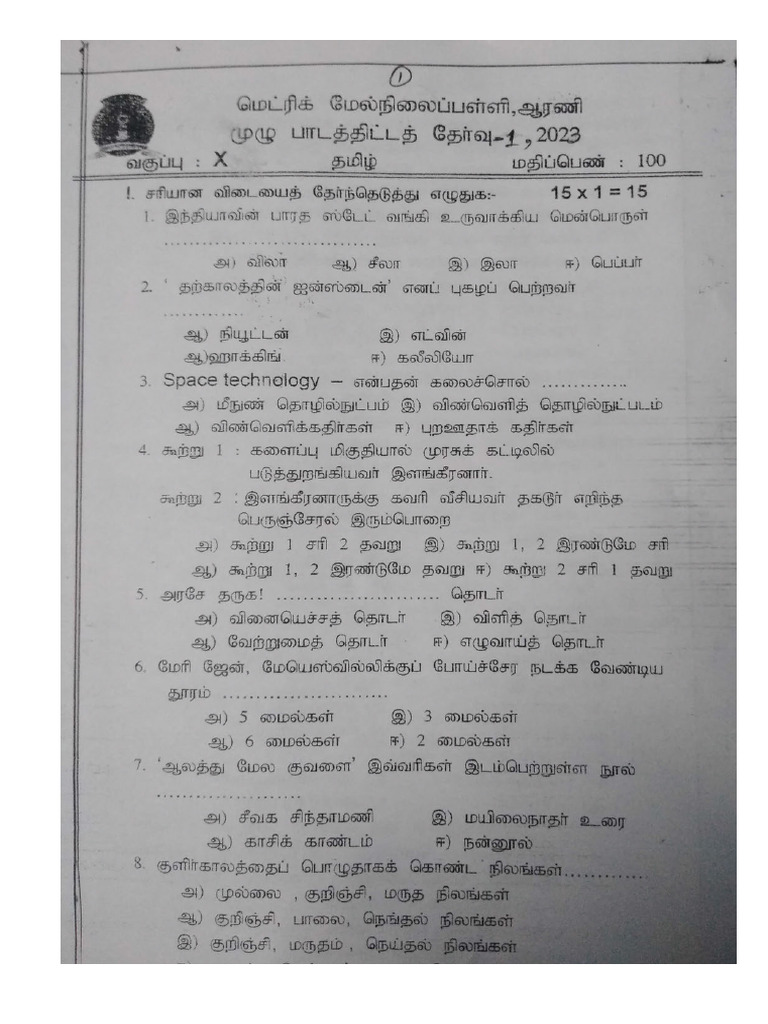 1
மெட்ரிக் மேல்நிலைப்பள்ளி,ஆரணி
முழு பாடத்திட்டத் தேர்வு-1, 2023
வகுப்பு : X தமிழ் மதிப்பெண் : 100
!. சரியான விடையைத் தேர்ந்தெடுத்து எழுதுக:- 15 x 1 = 15
1. இந்தியாவின் பாரத ஸ்டேட் வங்கி உருவாக்கிய மென்பொருள்
................................
அ) விலா ஆ) சீலா இ) இலா ஈ) பெப்பர்
2. ' தற்காலத்தின் ஐன்ஸ்டைன்' எனப் புகழப் பெற்றவர்
............
ஆ) நியூட்டன் இ) எட்வின்
ஆ)ஹாக்கிங் ஈ) கலீலியோ
3. Space technology – என்பதன் கலைச்சொல் .............
அ) மீநுண் தொழில்நுட்பம் இ) விண்வெளித் தொழில்நுட்படம்
ஆ) விண்வெளிக்கதிர்கள் ஈ) புறஊதாக் கதிர்கள்
4. கூற்று 1 : களைப்பு மிகுதியால் முரசுக் கட்டிலில்
படுத்துறங்கியவர் இளங்கீரனார்.
கூற்று 2 : இளங்கீரனாருக்கு கவரி வீசியவர் தகடூர் எறிந்த
பெருஞ்சேரல் இரும்பொறை
அ) கூற்று 1 சரி 2 தவறு இ) கூற்று 1, 2 இரண்டுமே சரி
ஆ) கூற்று 1, 2 இரண்டுமே தவறு ஈ) கூற்று 2 சரி 1 தவறு
5. அரசே தருக! ......................... தொடர்
அ) வினையெச்சத் தொடர் இ) விளித் தொடர்
ஆ) வேற்றுமைத் தொடர் ஈ) எழுவாய்த் தொடர்
6. மேரி ஜேன், மேயெஸ்வில்லிக்குப் போய்ச்சேர நடக்க வேண்டிய
தூரம் .........................
அ) 5 மைல்கள் இ) 3 மைல்கள்
ஆ) 6 மைல்கள் ஈ) 2 மைல்கள்
7. 'ஆலத்து மேல குவளை' இவ்வரிகள் இடம்பெற்றுள்ள நூல்
......................
அ) சீவக சிந்தாமணி இ) மயிலைநாதர் உரை
ஆ) காசிக் காண்டம் ஈ) நன்னூல்
8. குளிர்காலத்தைப் பொழுதாகக் கொண்ட நிலங்கள்.............
அ) முல்லை , குறிஞ்சி, மருத நிலங்கள்
ஆ) குறிஞ்சி, பாலை, நெங்தல் நிலங்கள்
இ) குறிஞ்சி, மருதம் , நெய்தல் நிலங்கள்